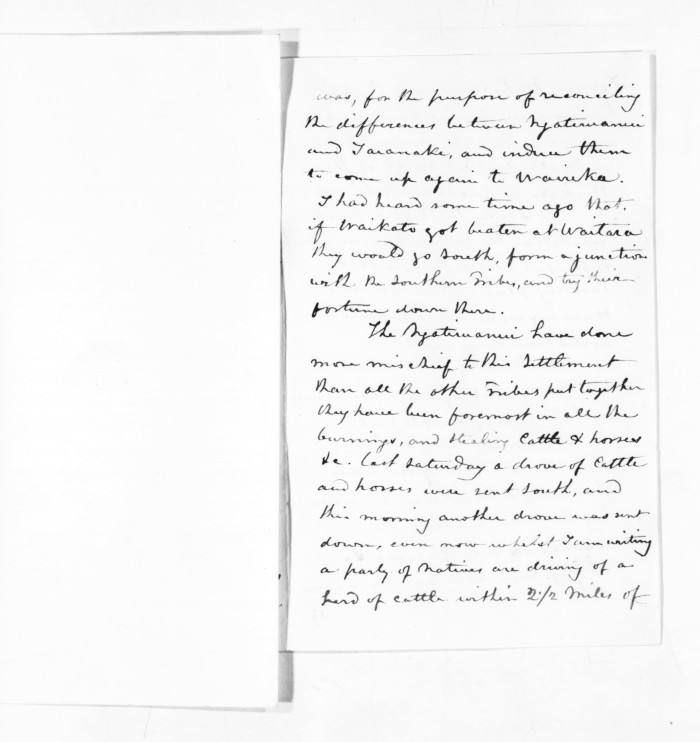 was, for the purpose of reconciling
the differences between Ngatiruanui
and Taranaki, and induce them
to come up again to Waireka.
I had heard some time ago that,
if Waikato got beaten at Waitara
they would go South, form a junction
with the Southern Tribes, and try their
fortune down there.
The Ngatiruanui have done
more mischief to this Settlement
than all the other Tribes put together
they have been foremost in all the
burnings, and stealing Cattle & horses
&c. last Saturday a drove of Cattle
and horses were sent South, and
this morning another drove was sent
down, even now whilst I am writing
a party of Natives are driving of a
herd of cattle within 2 1/2 Miles of